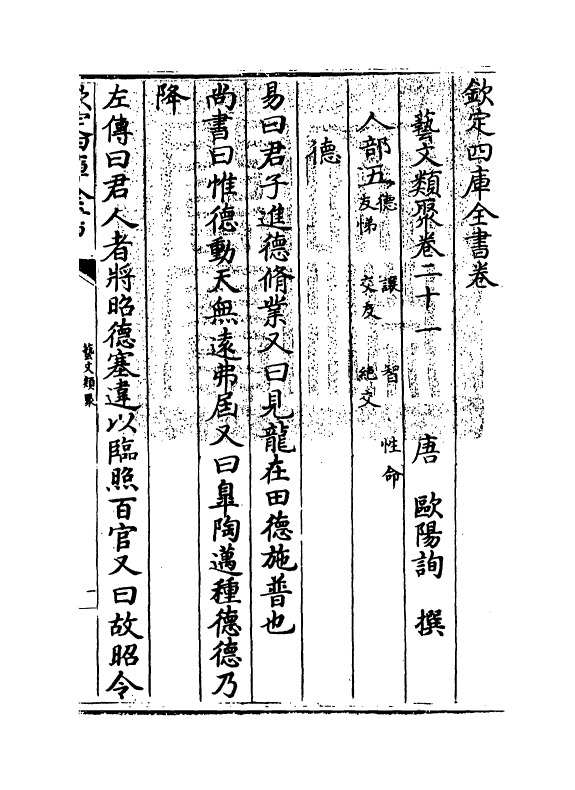 欽定四庫全書卷
藝文類聚卷二十一　唐　歐陽詢　撰
人部五　德　讓　智　性命
友悌　交友　絶交
德
易曰君子進德脩業又曰見龍在田德施普也
尚書曰惟德動天無逺弗屆又曰臯陶邁種德德乃
降
左傳曰君人者將昭德塞違以臨照百官又曰故昭令
欽定四庫全書
藝文類聚
一